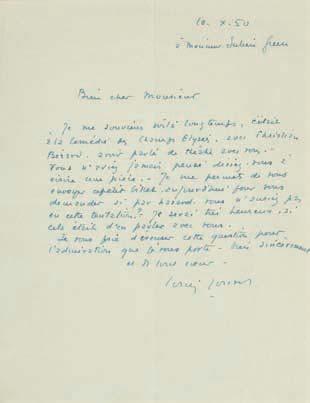 10. X. 50
à Monsieur Julien Green
Bien cher Monsieur
Je me souviens voilà longtemps, c'était
à la Comédie des Champs Elysées, avec Christian
Bérard, avoir parlé de théâtre avec vous.
Vous n'aviez jamais pensé, disiez-vous à
écrire une pièce. - Je me permets de vous
envoyer ce petit billet aujourd'hui pour vous
demander si par hasard, vous n'auriez pas
eu cette tentation? Je serai très heureux, si
cela était d'en parler avec vous.
Je vous prie d'excuser cette question pour
l'admiration que je vous porte. Très sincèrement
et de tout cœur
Louis Jouvet